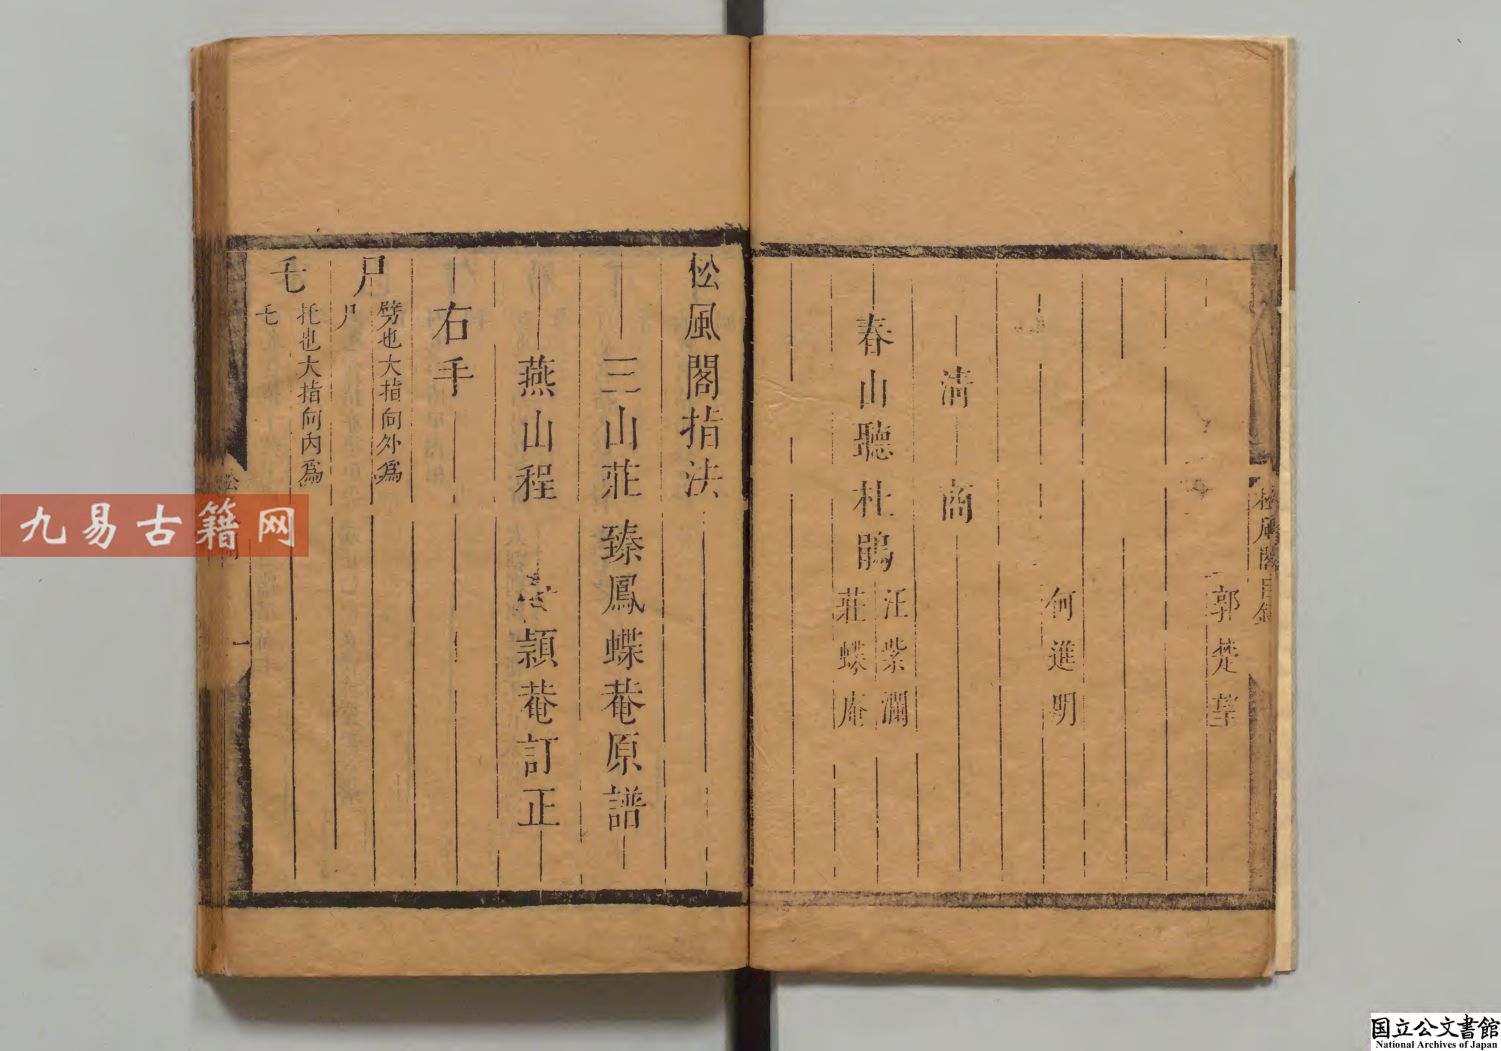 郭楚望
何進明
清商
春山聽杜鵑
汪紫瀾
莊蝶庵
松風閣指法
三山莊臻鳳蝶菴原譜
燕山程 穎菴訂正
右手
尸 劈也大指向外爲
尸
乇 托也大指向内爲
乇
松風閣目錄
一
九易古籍网
国立公文書館
National Archives of Japan